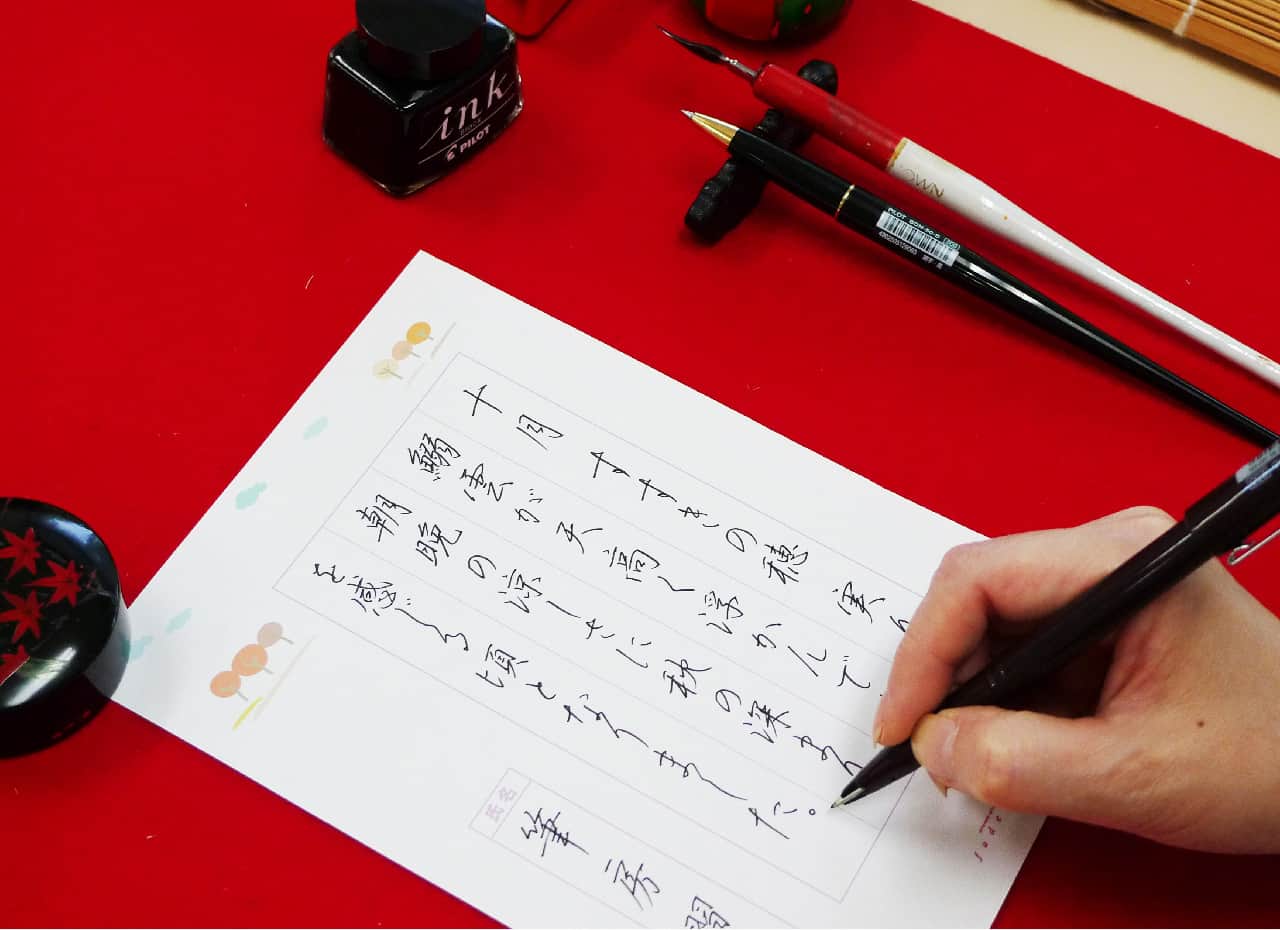 十月 すすきの穂 実り
鰯雲が天高く浮かんで
朝晩の涼しさに秋の深まり
を感じる頃となりました。
氏名
筆
ink
BLACK
PILOT
PILOT